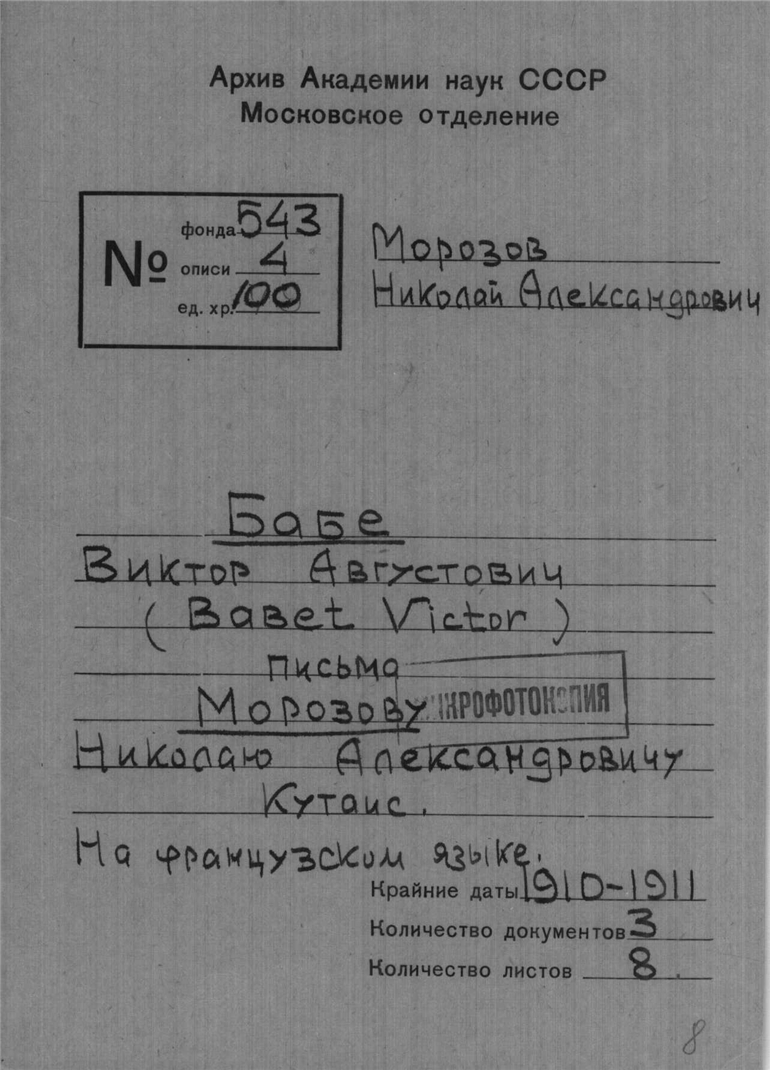 Архив Академии наук СССР
Московское отделение
№
фонда 543
описи 4
ед. хр. 100
Морозов
Николай Александрович
Бабе
Виктор Августович
(Babet Victor)
письма
Морозову
МИКРОФОТОКОПИЯ
Николаю Александровичу
Кутаис.
На французском языке.
Крайние даты 1910-1911
Количество документов 3
Количество листов 8.
8